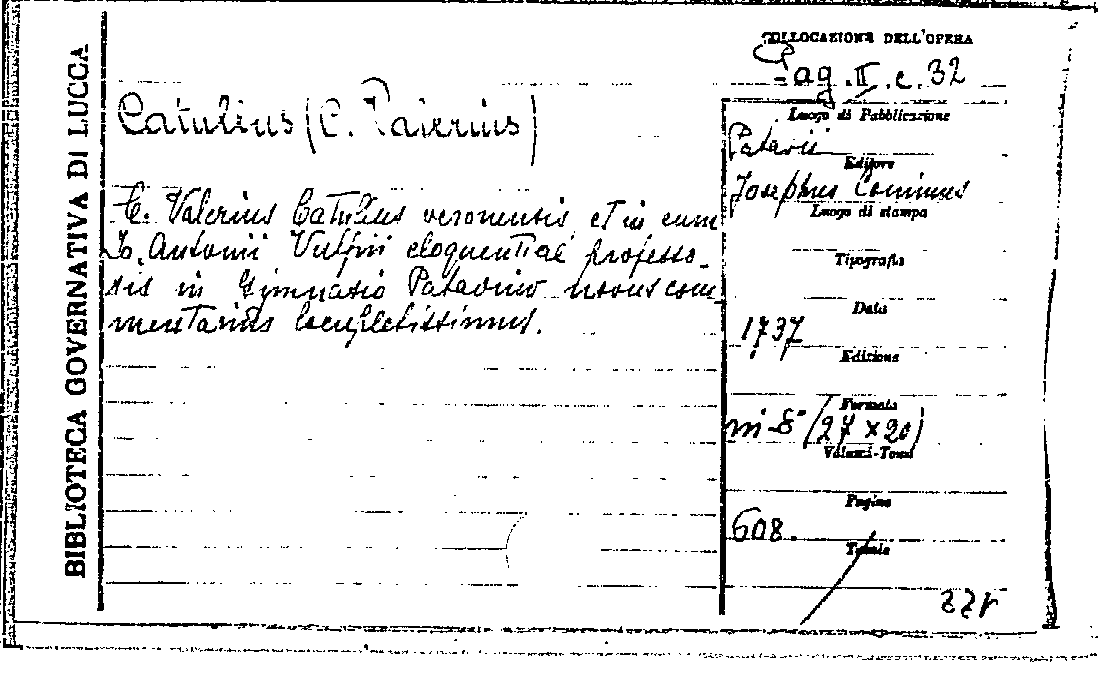 BIBLIOTECA GOVERNATIVA DI LUCCA
COLLOCAZIONE DELL'OPERA
Pag. II. c. 32
Catullus (C. Valerius)
C. Valerius Catullus veronensis et in eum
Jo. Antonii Vulpii eloquentiae professo-
ris in Gymnasio Patavino novus com
mentarius locupletissimus.
Luogo di Pubblicazione
Patavii
Editore
Josephus Cominus
Luogo di stampa
Tipografia
Data
1737
Edizione
Formato
in-8° (27 x 20)
Volumi-Tomi
Pagine
608.
Tavole